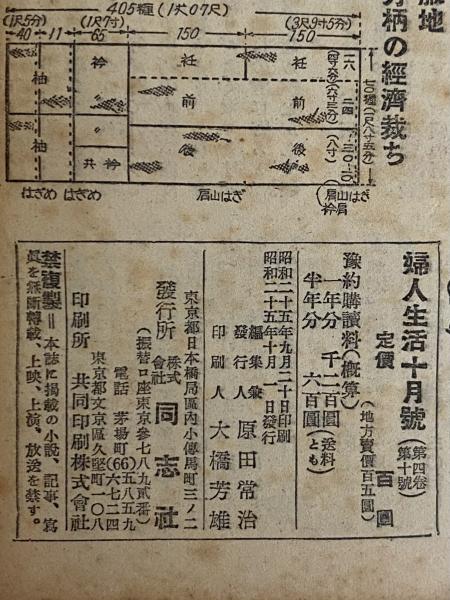 服地
分柄の經濟裁ち
405糎(1丈07尺)
(1尺5分) (1尺7寸) (3尺9寸5分)
40 11 65 150 150
袖 衿 衽 衽
前 前
袖 共衿 後 後
二六
二四
(六寸三分)
三〇
(八寸)
一〇
七〇糎(一尺八寸五分)
はぎめ はぎめ 肩山はぎ
婦人生活十月號(第四卷第十號)
定價 百圓
(地方賣價百五圓)
豫約購讀料(概算)
一年分 千二百圓(送料とも)
半年分 六百圓
昭和二十五年九月二十日印刷
昭和二十五年十月一日發行
編集兼發行人 原田常治
印刷人 大橋芳雄
東京都日本橋局區內小傳馬町三ノ二
發行所 株式會社 同志社
(振替口座東京參七八九貳番)
電話 茅場町(66)五八五九 六七二四
東京都文京區久堅町一〇八
印刷所 共同印刷株式會社
禁複製=本誌に掲載の小説、記事、寫
眞を無斷轉載、上映、上演、放送を禁ず。